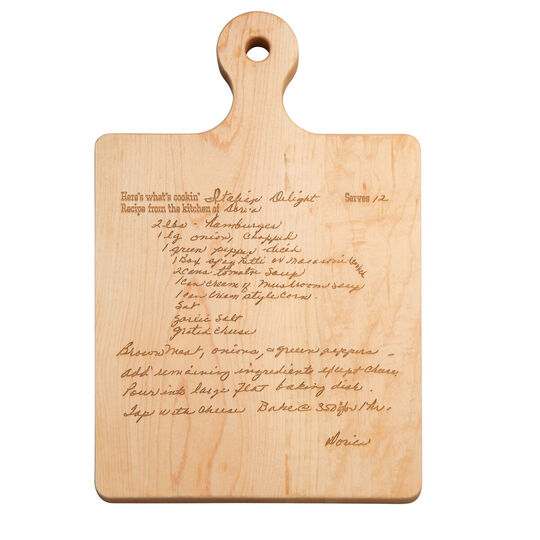 Here's what's cookin' Italian Delight Serves 12
Recipe from the kitchen of Doris
2 lbs - hamburger
1 lg onion, Chopped
1 green pepper diced
1 Box spaghetti or Macaroni cooked
2 cans tomato soup
1 can cream of Mushroom soup
1 can cream style corn.
Salt
Garlic Salt
grated cheese
Brown meat, onions, & green peppers -
add remaining ingredients except cheese.
Pour into large flat baking dish.
Top with cheese Bake @ 350° for 1 hr.
Doris